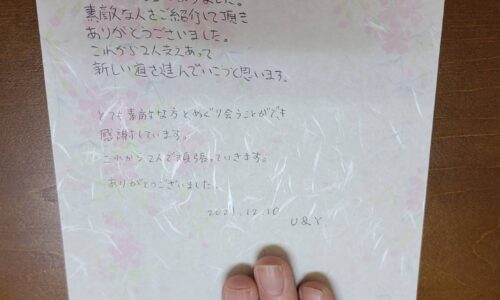 りました。
素敵な人をご紹介して頂き
ありがとうございました。
これから2人支えあって
新しい道を進んでいこうと思います。
とても素敵な方とめぐり会うことができ
感謝しています。
これから2人で頑張っていきます。
ありがとうございました。
2021.12.10
U&Y.